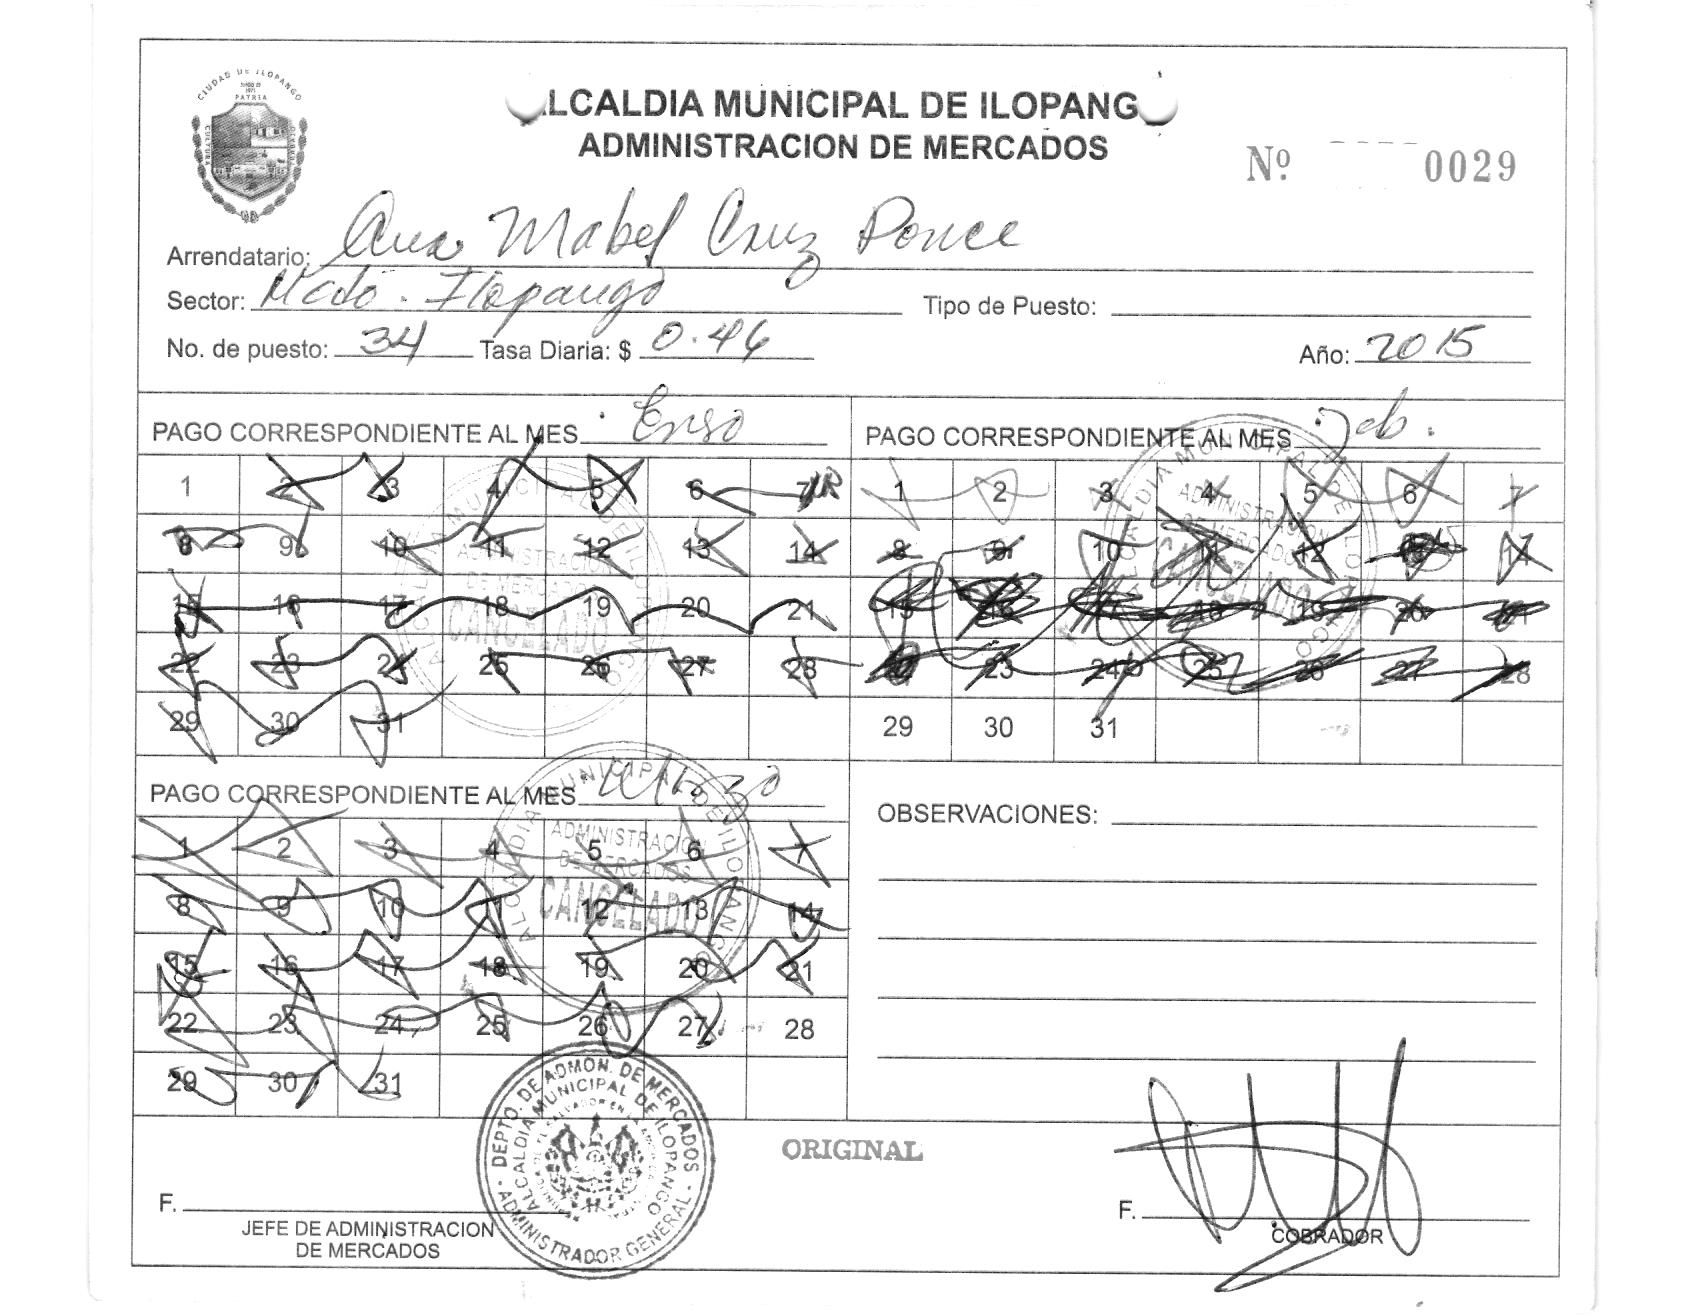 CIUDAD DE ILOPANGO
PATRIA
CULTURA
ALCALDIA MUNICIPAL DE ILOPANG
ADMINISTRACION DE MERCADOS
Nº 0029
Arrendatario: Ana Mabel Cruz Ponce
Sector: Mcdo. Ilopango Tipo de Puesto:
No. de puesto: 34 Tasa Diaria: $ 0.46 Año: 2015
PAGO CORRESPONDIENTE AL MES Enero
1 2 3 4 5 6 7
8 9 10 11 12 13 14
15 16 17 18 19 20 21
22 23 24 25 26 27 28
29 30 31
ALCALDIA MUNICIPAL DE ILOPANGO
ADMINISTRACION
DE MERCADOS
CANCELADO
PAGO CORRESPONDIENTE AL MES Feb.
1 2 3 4 5 6 7
8 9 10 11 12 13 14
15 16 17 18 19 20 21
22 23 24 25 26 27 28
29 30 31
ALCALDIA MUNICIPAL DE ILOPANGO
ADMINISTRACION
DE MERCADOS
CANCELADO
PAGO CORRESPONDIENTE AL MES Marzo
1 2 3 4 5 6 7
8 9 10 11 12 13 14
15 16 17 18 19 20 21
22 23 24 25 26 27 28
29 30 31
ALCALDIA MUNICIPAL DE ILOPANGO
ADMINISTRACION
DE MERCADOS
CANCELADO
OBSERVACIONES:
DEPTO. DE ADMON. DE MERCADOS
ALCALDIA MUNICIPAL DE ILOPANGO
ADMINISTRADOR GENERAL
ORIGINAL
F.
JEFE DE ADMINISTRACION
DE MERCADOS
F.
COBRADOR